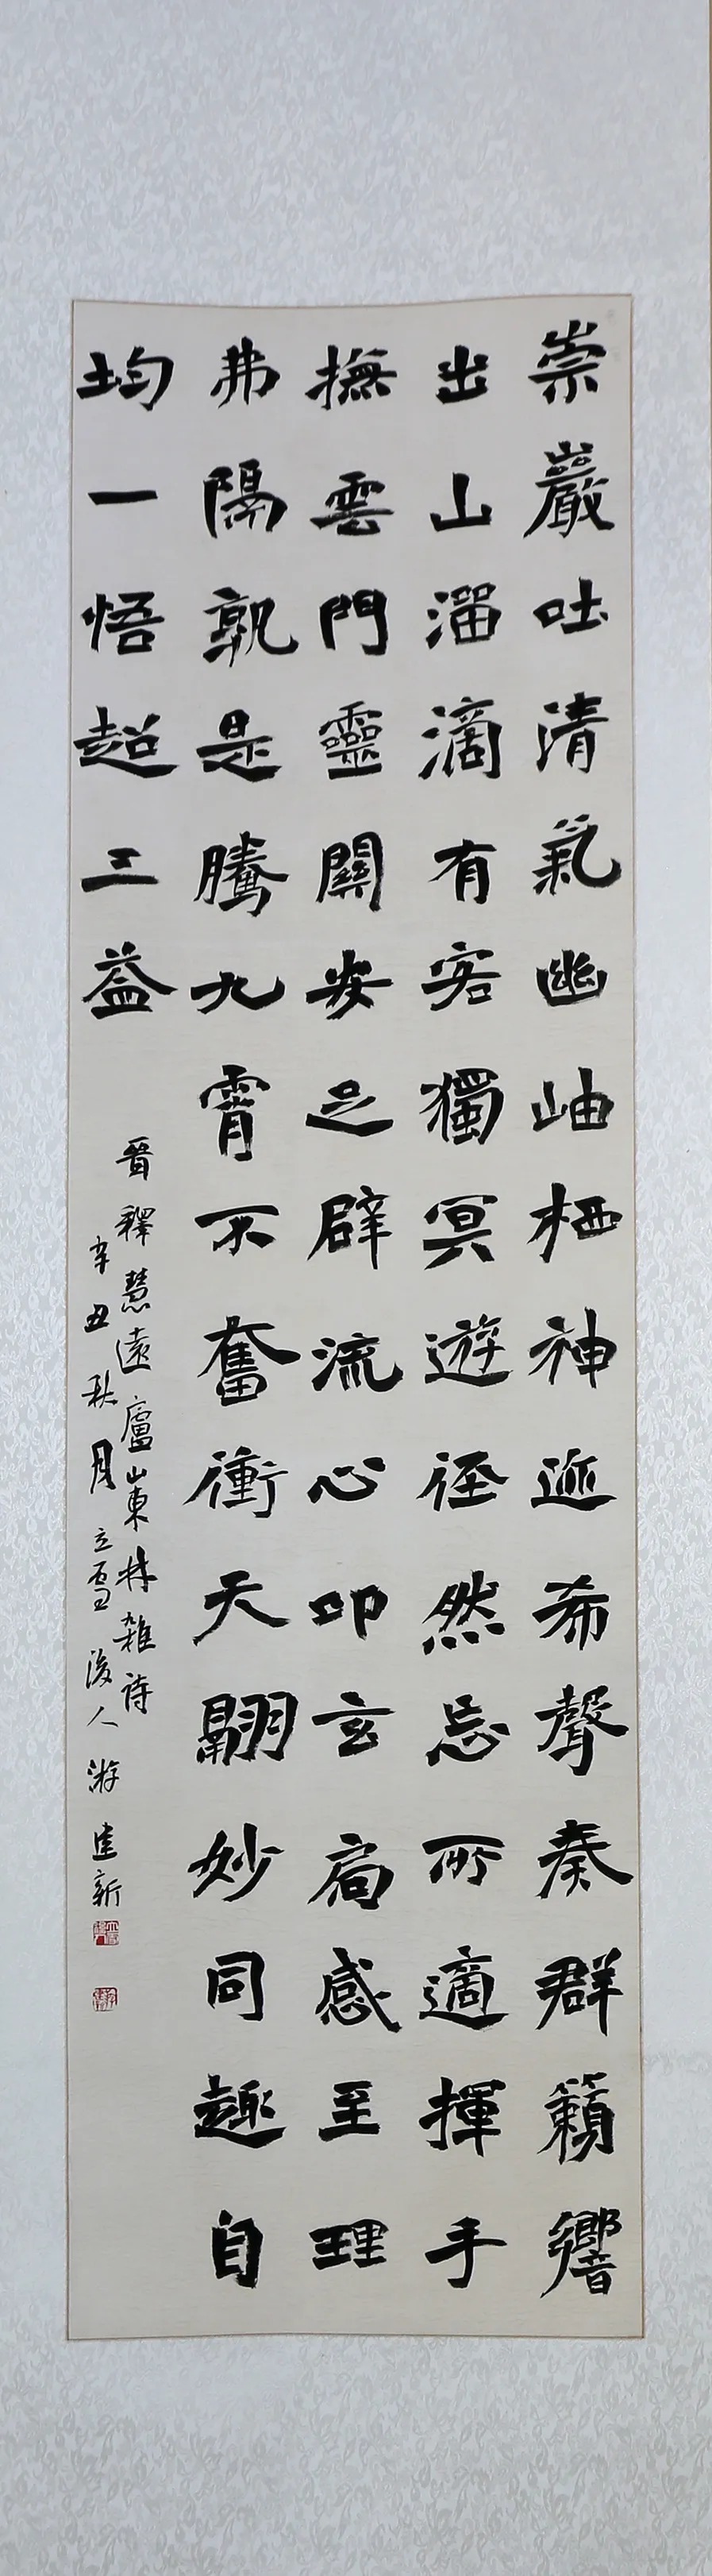 崇巖吐清氣幽岫栖神迹希聲奏群籟響
出山溜滴有客獨冥遊徑然忘所適揮手
撫雲門靈關安足辟流心叩玄扃感至理
弗隔孰是騰九霄不奮衝天翮妙同趣自
均一悟超三益
晉釋慧遠廬山東林雜詩
辛丑秋月立雪後人游建新